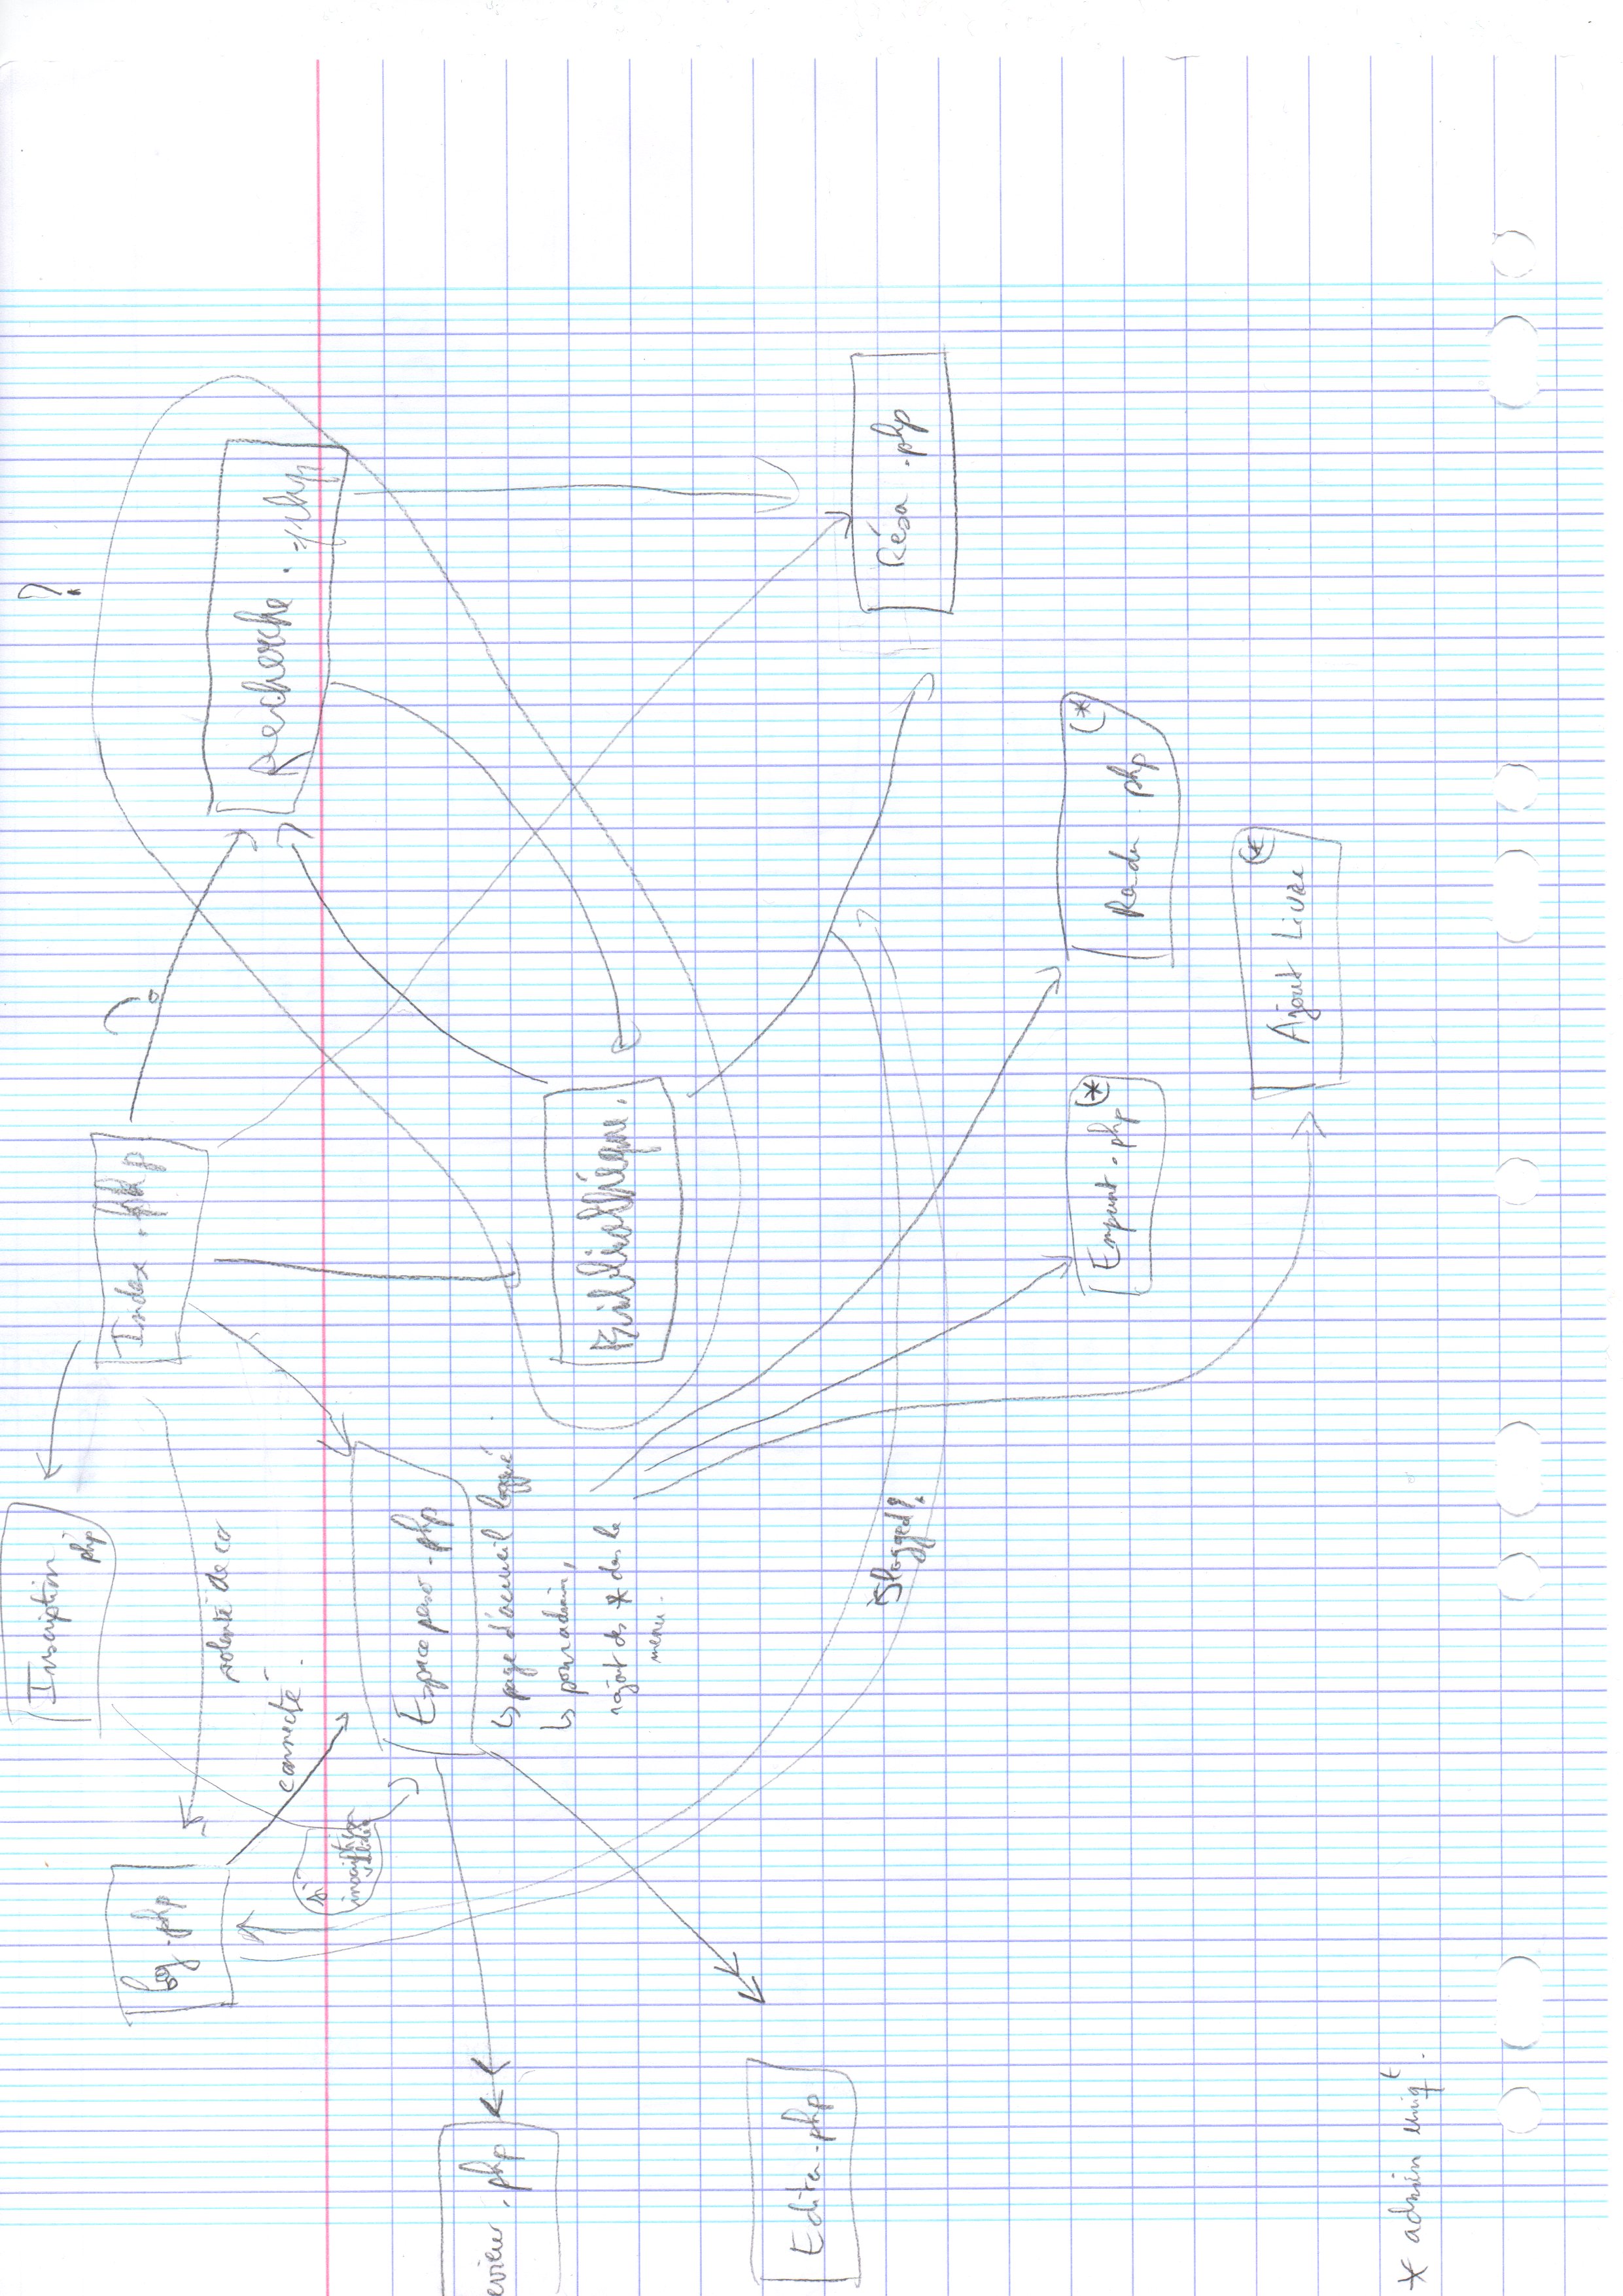 Inscription
php
?
log.php
Index.php
?
volonté de co
Recherche.php
connecté.
si
inscription
validée
Espace perso.php
↳ page d'accueil loggué
↳ pour admin,
rajout des * dans le
menu.
.php
Bibliothéque.
Editer.php
islogged?
Résa.php
Emprunt.php *
Rendu.php *
Ajout Livre *
* admin uniqt.